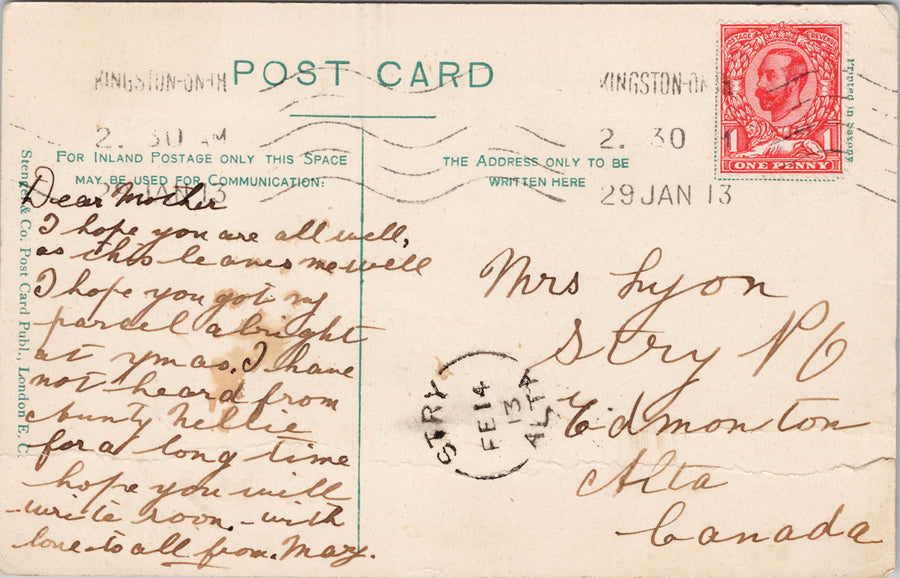 POST CARD
KINGSTON-ON-TH
2. 30 AM
29 JAN 13
KINGSTON-ON-TH
2. 30 M
29 JAN 13
POSTAGE REVENUE
1 1
ONE PENNY
Printed in Saxony
FOR INLAND POSTAGE ONLY THIS SPACE
MAY BE USED FOR COMMUNICATION:
THE ADDRESS ONLY TO BE
WRITTEN HERE
Stengel & Co. Post Card Publ., London E. C.
Dear Mother
I hope you are all well,
as this leaves me well
I hope you got my
parcel alright
at xmas. I have
not heard from
Aunty Nellie
for a long time
hope you will
write soon. with
love to all from. May.
Mrs Lyon
Stry P O
Edmonton
Alta
Canada
STRY
FE 14
13
ALTA